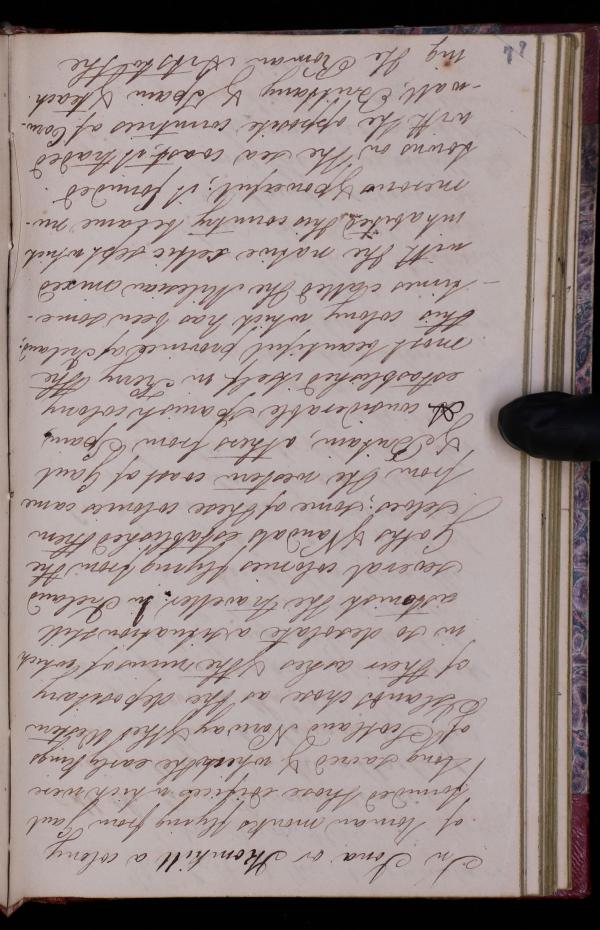 In Iona or Ikomkill a colony
of Roman monks flying from Gaul
founded those edifices which were
long sacred & where the early Kings
of Scotland Norway & the Western
Islands chose as the depositary
of their ashes & the ruins of which
in so desolate a situation still
astonish the traveller. In Ireland
several colonies flying from the
Goths & Vandals established them
selves; some of these colonies came
from the western coast of Gaul
& Britain, others from Spain,
A considerable Spanish colony
established itself in Kerry the
most beautiful province of Ireland.
this colony which has been some-
-times called the Milesian mixed
with the native Celtic sept which
inhabited this country became nu-
merous & powerful; it founded
towns on the sea coast, it traded
with the opposite countries of Corn-
-wall, Brittany & Spain & teach
ing the Roman Arts to the